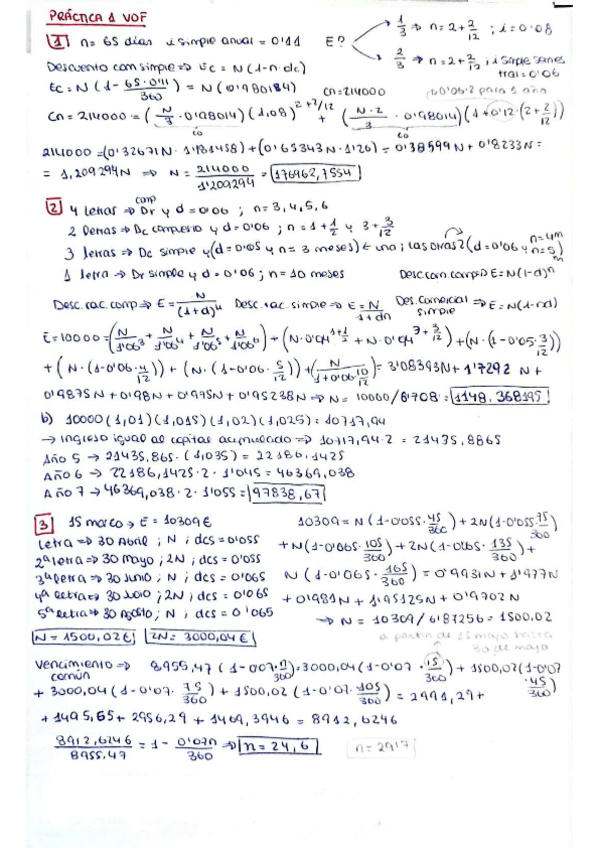 PRÁCTICA 1 VOF
1 n = 65 días i simple anual = 0'11 E? 1/3 ⇒ n = 2 + 2/12 ; i = 0'08
2/3 ⇒ n = 2 + 2/12 ; i simple semestral = 0'06
Descuento com simple ⇒ Ec = N (1 - n·dc)
Ec = N (1 - 65·0'11/360) = N (0'980184) Cn = 214000 0'06·2 para 1 año
Cn = 214000 = (N/3 · 0'98014) (1,08)^2+2/12 + (N·2/3 · 0'98014) (1 + 0'12 · (2 + 2/12))
Co Co
214000 = (0'32671N · 1'181458) + (0'65343N · 1'26) = 0'38599N + 0'8233N =
= 1,209294N ⇒ N = 214000/1'209294 = 176962,7554
2 4 letras ⇒ Dr comp y d = 0'06 ; n = 3, 4, 5, 6
2 letras ⇒ Dc compuesto y d = 0'06 ; n = 1 + 1/2 y 3 + 3/12
3 letras ⇒ Dc simple y (d = 0'05 y n = 3 meses) ← una ; las otras 2 (d = 0'06 y n = 4m n = 5m)
1 letra ⇒ Dr simple y d = 0'06 ; n = 10 meses Desc com. comp ⇒ E = N(1-d)^n
Desc. rac. comp ⇒ E = N/(1+d)^n Desc. rac. simple ⇒ E = N/1+dn Des. comercial simple ⇒ E = N(1-nd)
E = 10000 = (N/1'06^3 + N/1'06^4 + N/1'06^5 + N/1'06^6) + (N·0'94^1+1/2 + N·0'94^3+3/12) + (N·(1-0'05·3/12))
+ (N·(1-0'06·4/12)) + (N·(1-0'06·5/12)) + (N/1+0'06·10/12) = 3'08393N + 1'7292 N +
0'9875N + 0'98N + 0'975N + 0'95238N ⇒ N = 10000/8'708 = 1148,368195
b) 10000 (1,01) (1,015) (1,02) (1,025) = 10717,94
→ ingreso igual al capital acumulado ⇒ 10717,94·2 = 21435,8865
Año 5 → 21435,865 · (1,035) = 22186,1425
Año 6 → 22186,1425 · 2 · 1'045 = 46369,038
Año 7 → 46369,038 · 2 · 1'055 = 97838,67
3 15 marzo → E = 10309€ 10309 = N (1-0'055·45/360) + 2N (1-0'055·75/360)
Letra ⇒ 30 Abril ; N ; dcs = 0'055
2ª letra ⇒ 30 mayo ; 2N ; dcs = 0'055 + N (1-0'065·105/360) + 2N (1-0'065·135/360) +
3ª letra ⇒ 30 Junio ; N ; dcs = 0'065 N (1-0'065·165/360) = 0'9931N + 1'977N
4ª letra ⇒ 30 Julio ; 2N ; dcs = 0'065 + 0'981N + 1'95125N + 0'9702 N
5ª letra ⇒ 30 Agosto ; N ; dcs = 0'065 ⇒ N = 10309/6'87256 = 1500,02
N = 1500,02€ 2N = 3000,04€ a partir de 15 mayo hasta 30 de mayo
Vencimiento común ⇒ 8955,47 (1-0'07·n/360) = 3000,04 (1-0'07·15/360) + 1500,02 (1-0'07·45/360)
+ 3000,04 (1-0'07·75/360) + 1500,02 (1-0'07·105/360) = 2991,29 +
+ 1495,65 + 2956,29 + 1469,3946 = 8912,6246
8912,6246/8955,47 = 1 - 0'07n/360 ⇒ n = 24,6 n = 29'7